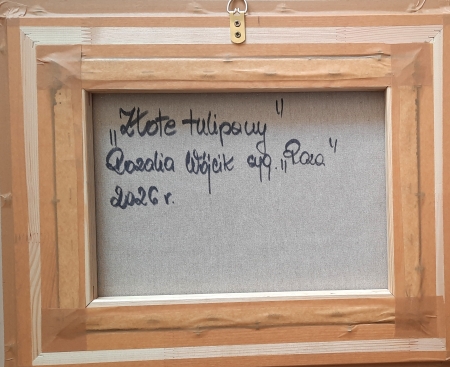 „Złote tulipany"
Rozalia Wójcik syg. „Roza"
2026 r.